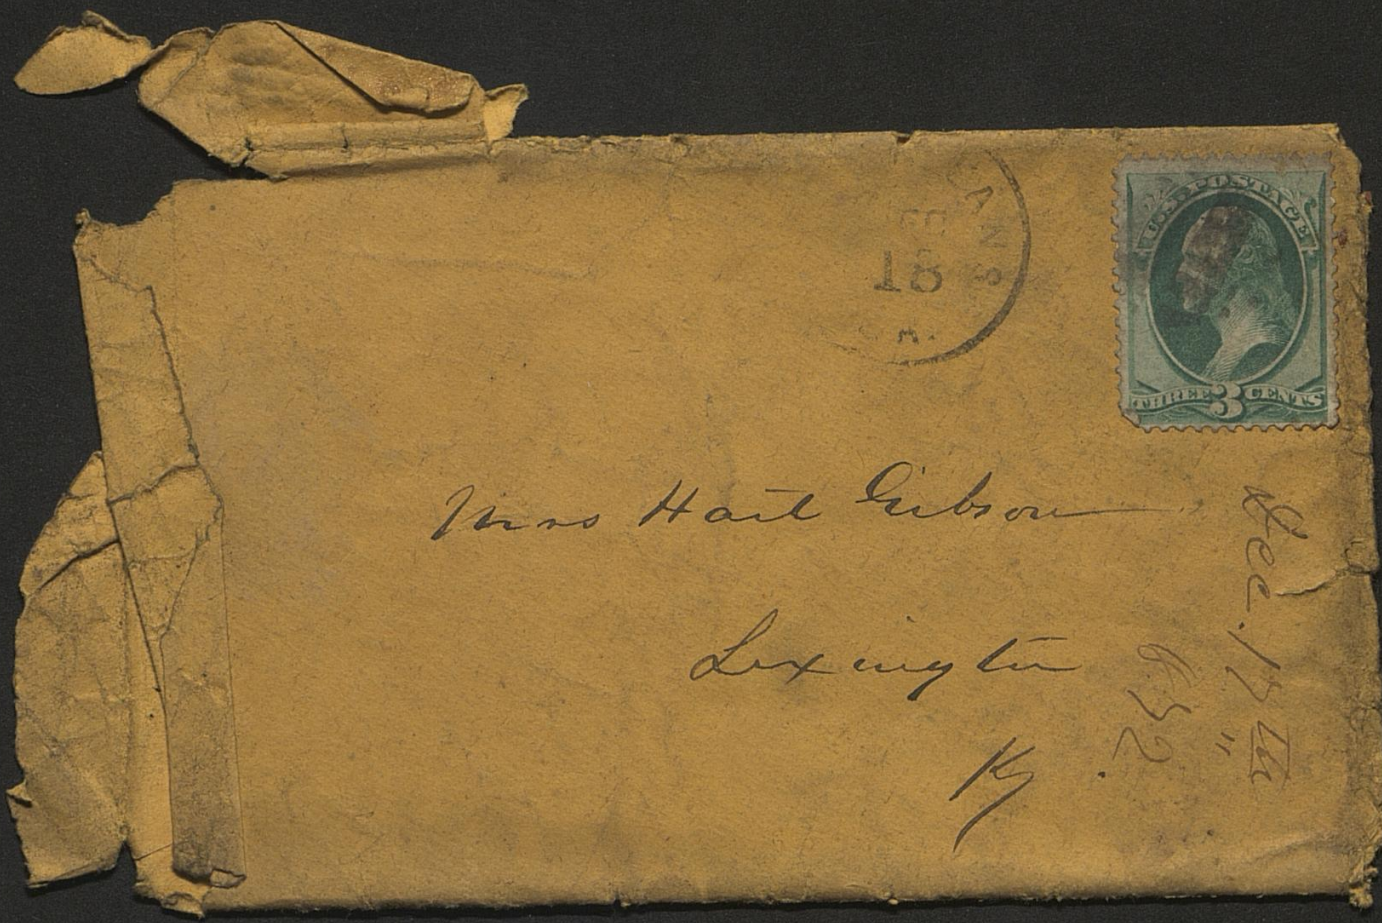 ANS
E
18
A.
U.S. POSTAGE
THREE 3 CENTS
Mrs Hart Gibson
Lexington
Ky
Dec. 17th